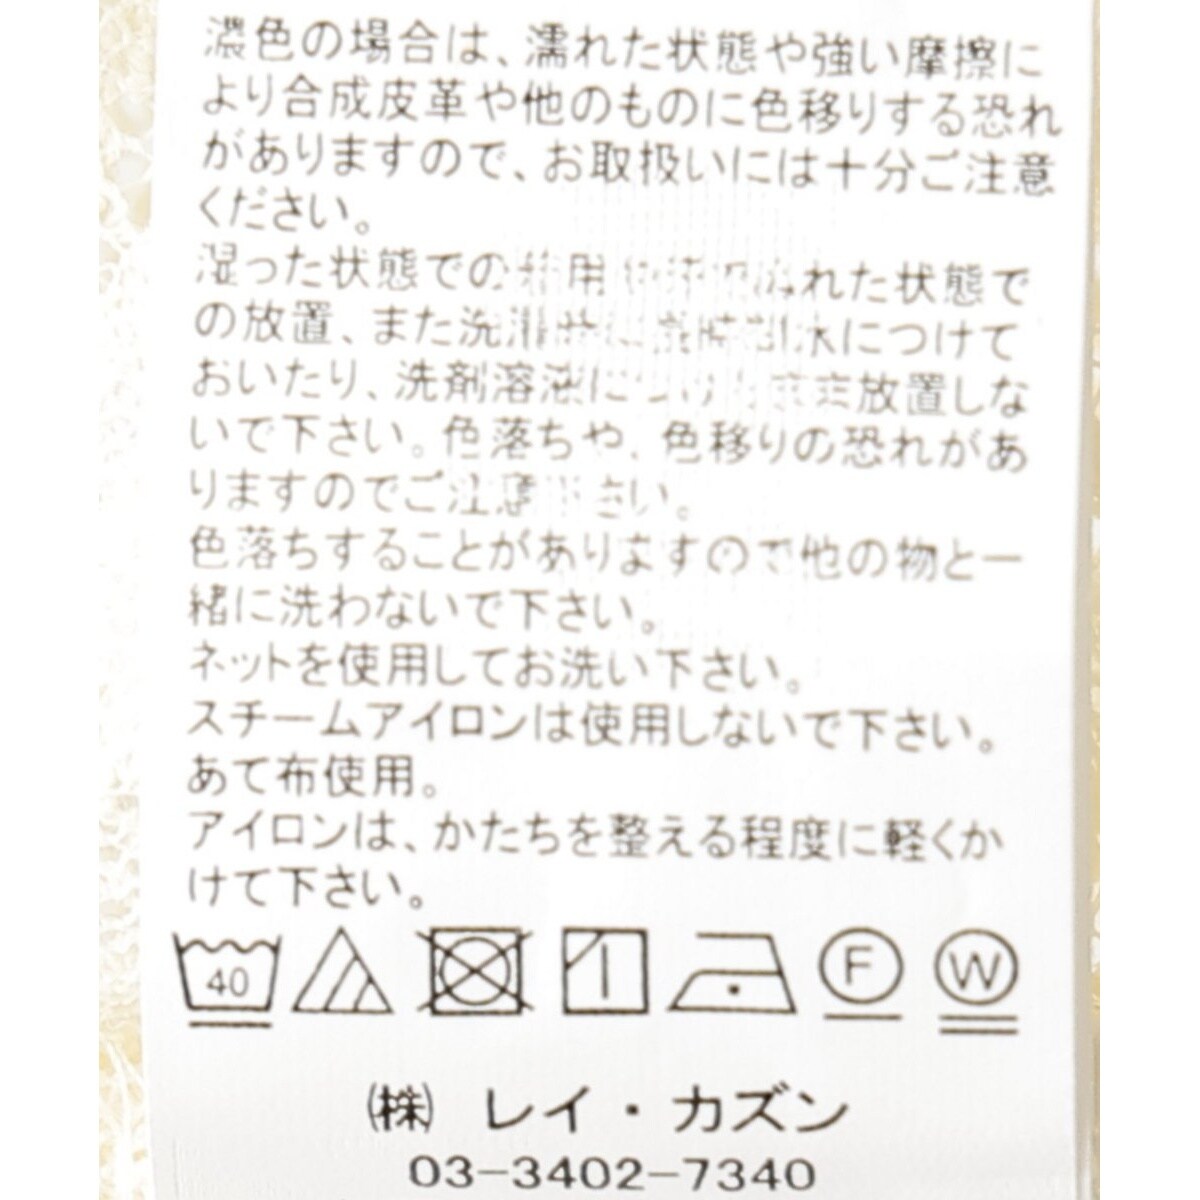 濃色の場合は、濡れた状態や強い摩擦に
より合成皮革や他のものに色移りする恐れ
がありますので、お取扱いには十分ご注意
ください。
湿った状態での着用 れた状態で
の放置、また洗濯 水につけて
おいたり、洗剤溶液に 放置しな
いで下さい。色落ちや、色移りの恐れがあ
りますのでご注意下さい。
色落ちすることがありますので他の物と一
緒に洗わないで下さい。
ネットを使用してお洗い下さい。
スチームアイロンは使用しないで下さい。
あて布使用。
アイロンは、かたちを整える程度に軽くか
けて下さい。
40 F W
㈱ レイ・カズン
03-3402-7340